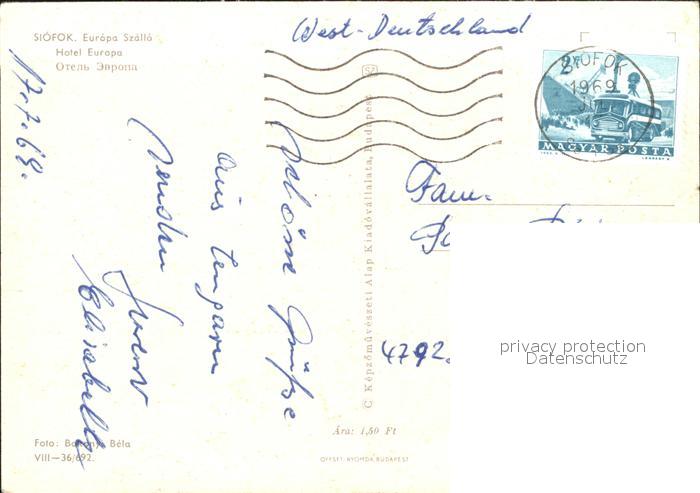 SIÓFOK. Európa Szálló
Hotel Europa
Отель Эвропа
West-Deutschland
SIÓFOK
1969
MAGYAR POSTA
Schöne Grüße
aus Ungarn
senden
Elisabeth
Fam.
4792.
privacy protection
Datenschutz
© Képzőművészeti Alap Kiadóvállalata, Budapest
Ára: 1,50 Ft
Foto: Béla
VIII—36/692.
OFFSET-NYOMDA BUDAPEST